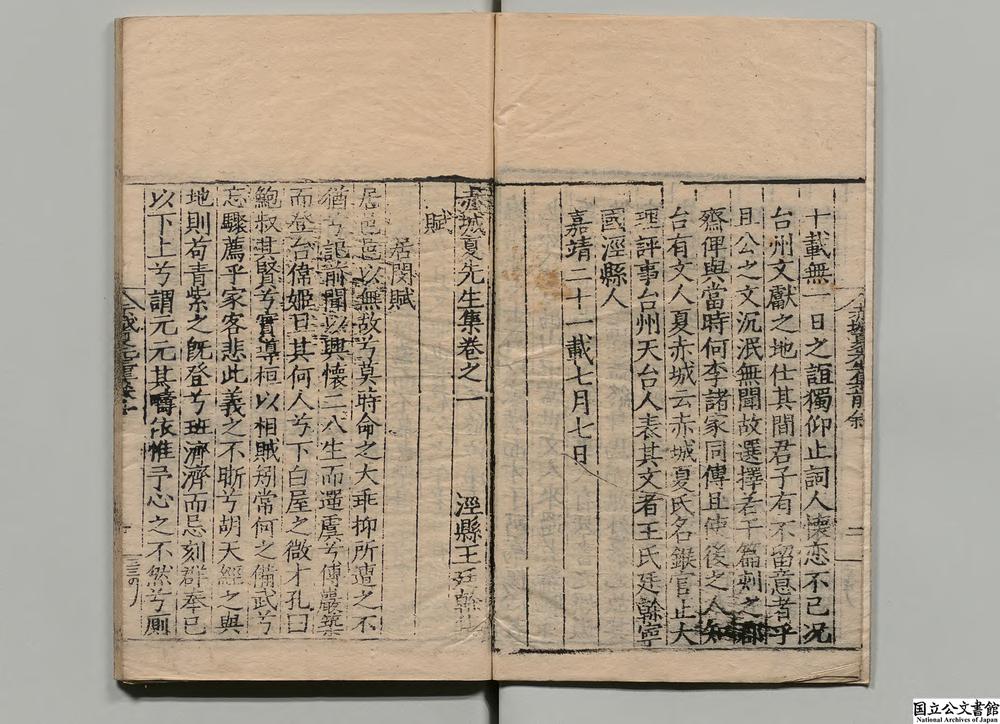 十載無一日之誼獨仰止詞人懷恋不已况
台州文獻之地仕其間君子有不留意者乎
且公之文沉泯無聞故選擇若干篇刻之郡
齋俾與當時何李諸家同傳且使後之人知
台有文人夏赤城云赤城夏氏名鍭官止大
理評事台州天台人表其文者王氏廷幹寧
國涇縣人
嘉靖二十一載七月七日
赤城夏先生集卷之一
涇縣王廷幹
賦
居閑賦
居邑邑以無故兮莫時命之大乖抑所遭之不
猶兮記前聞以興懷二八生而遭虞兮傅嚴築
而登台偉姬旦其何人兮下白屋之微才孔曰
鮑叔其賢兮實導桓以相賊矧常何之備武兮
忘驟薦乎家客悲此義之不昕兮胡天經之與
地則苟青紫之旣登兮班濟濟而忌刻群奉已
以下上兮謂元元其疇依惟予心之不然兮則
国立公文書館
National Archives of Japan